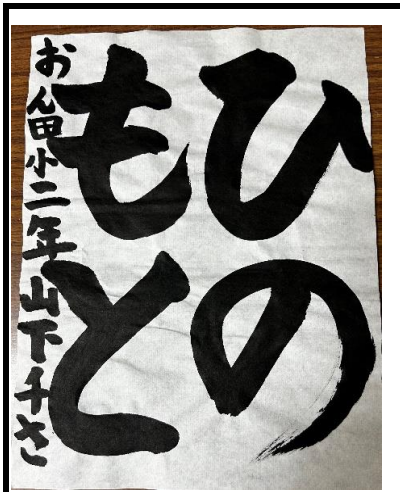 ひの
もと
お人田小二年山下千さ